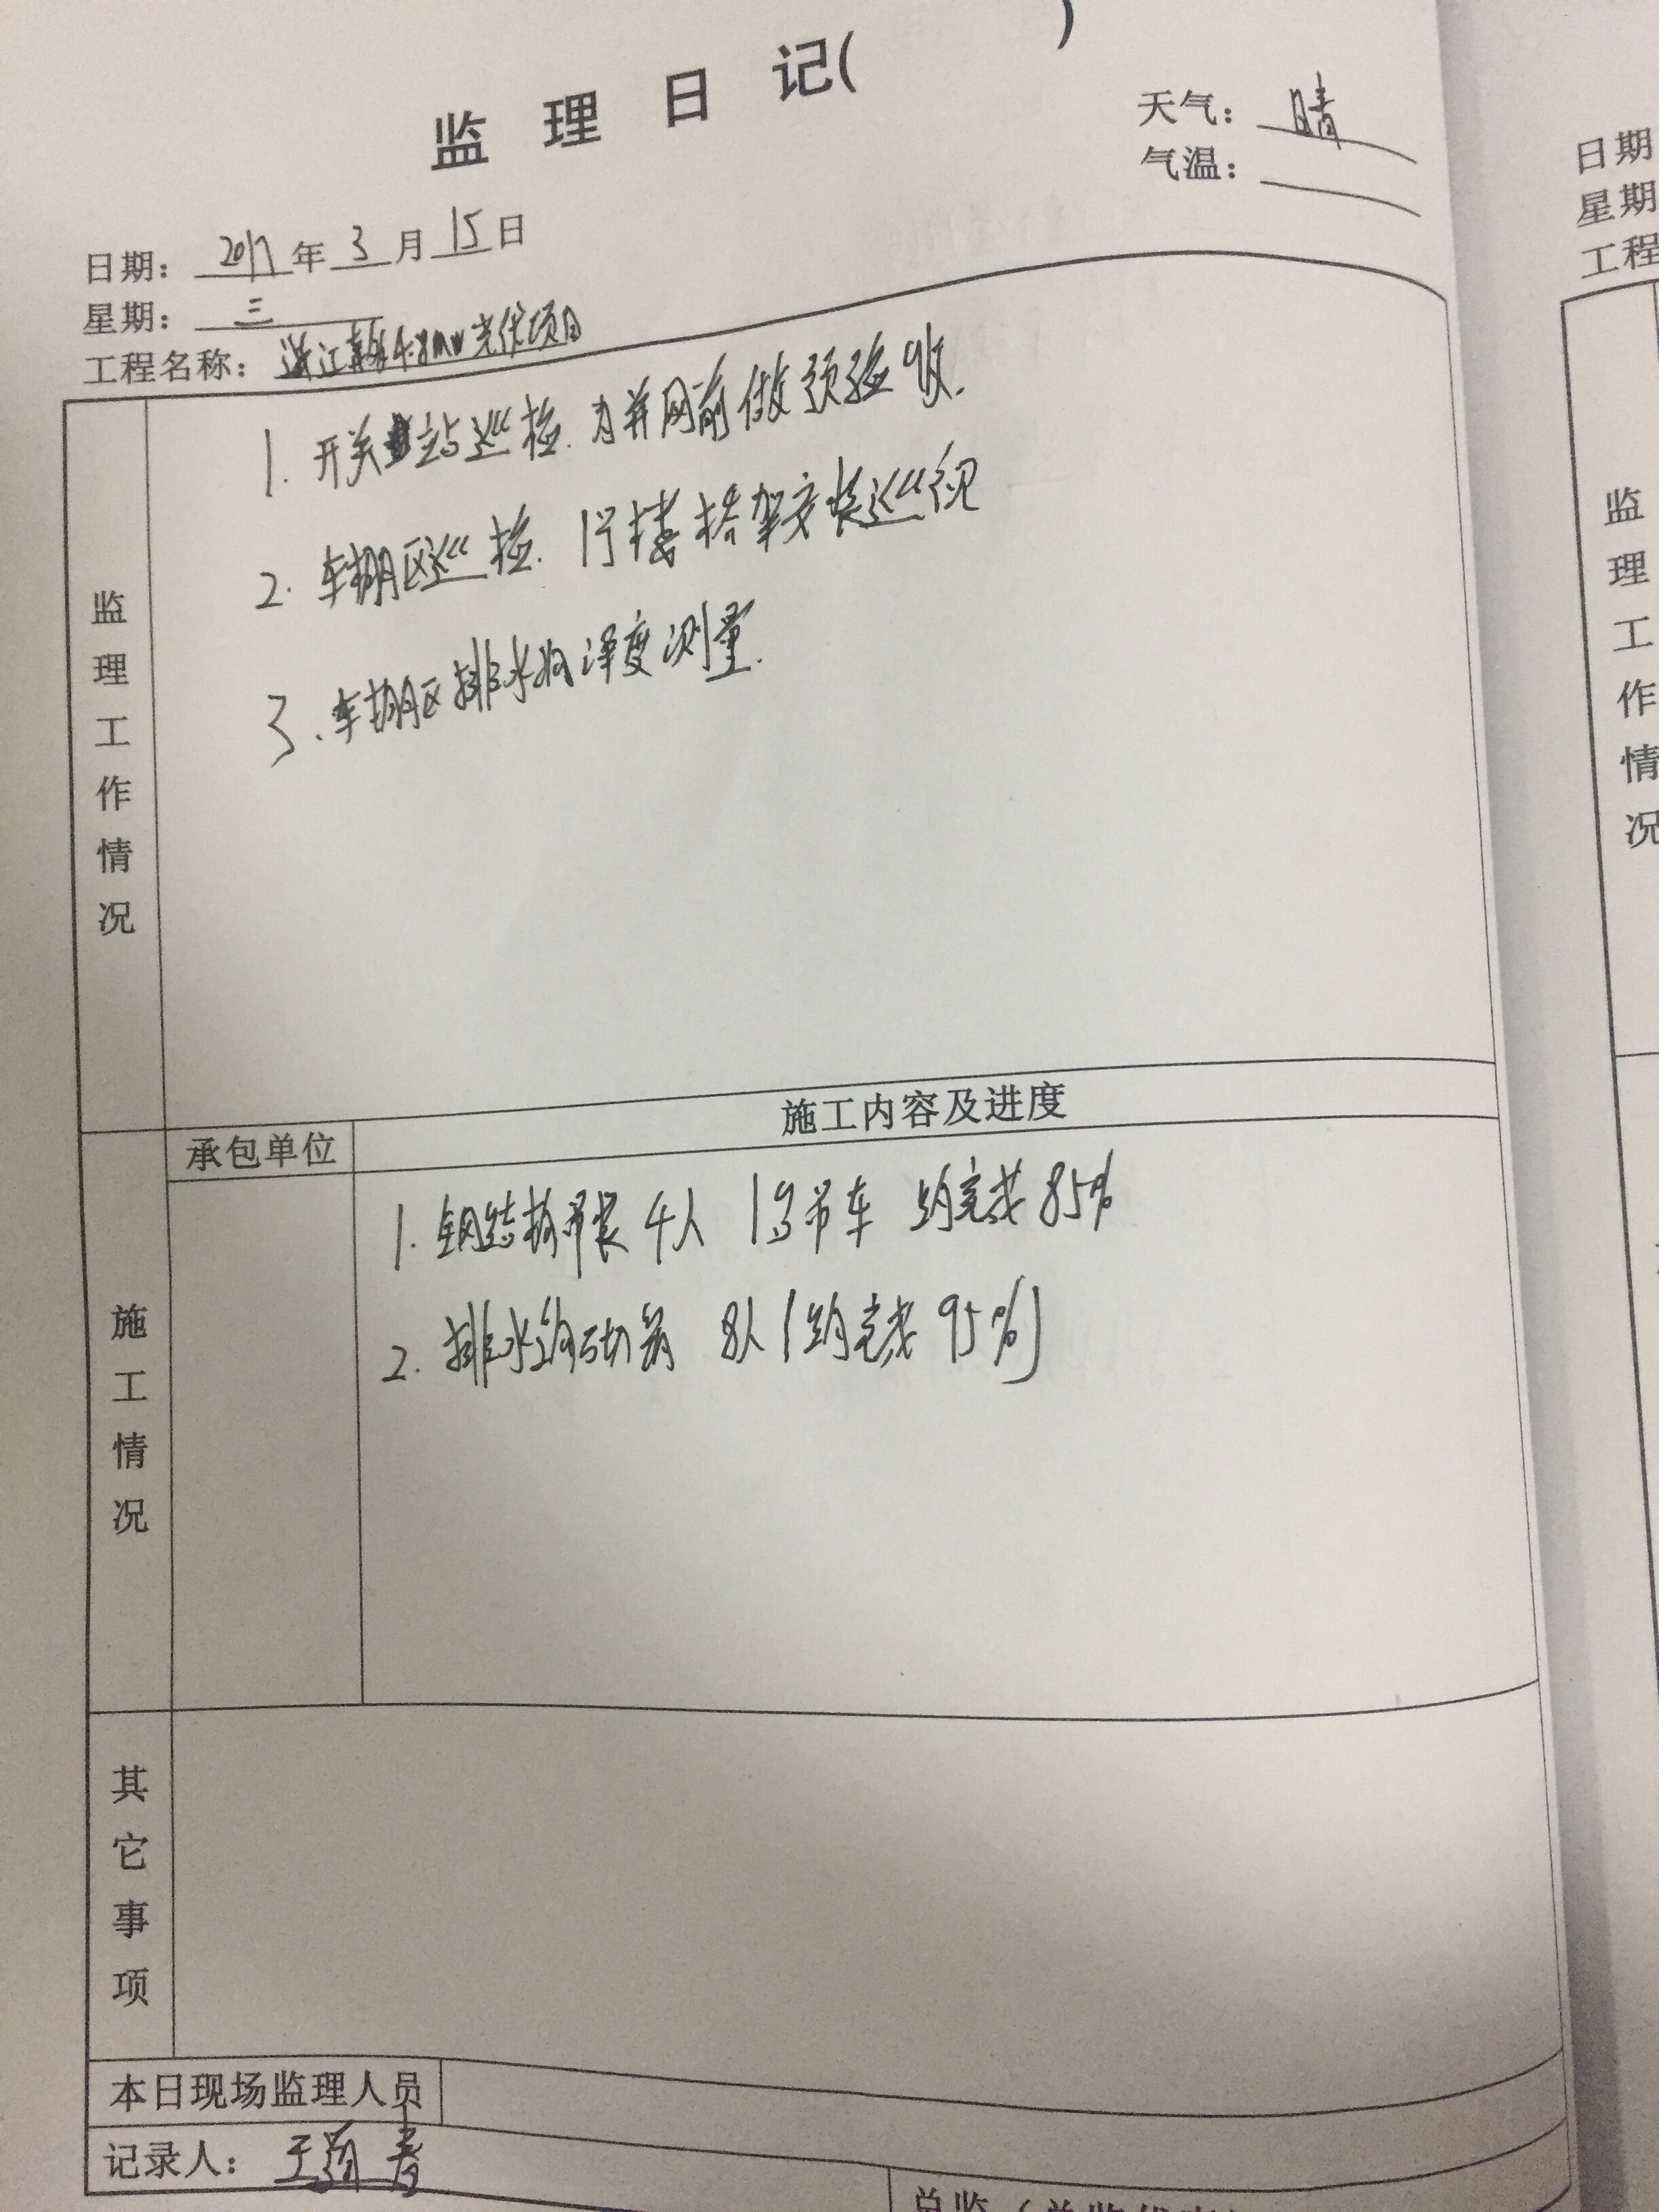 监 理 日 记( )
天气: 晴
气温:
日期: 2017 年 3 月 15 日
星期: 三
工程名称: 浙江 4.8MW光伏项目
监理工作情况
1. 开关站巡检.为并网前做预验收.
2. 车棚区巡检. 行楼桥架安装巡视
3. 车棚区排水沟深度测量.
承包单位
施工内容及进度
施工情况
1. 钢结构吊装 4人 1台吊车 约完成85%
2. 排水沟砌 8人(约完成95%)
其它事项
本日现场监理人员
记录人:
日期
星期
工程
监理工作情况